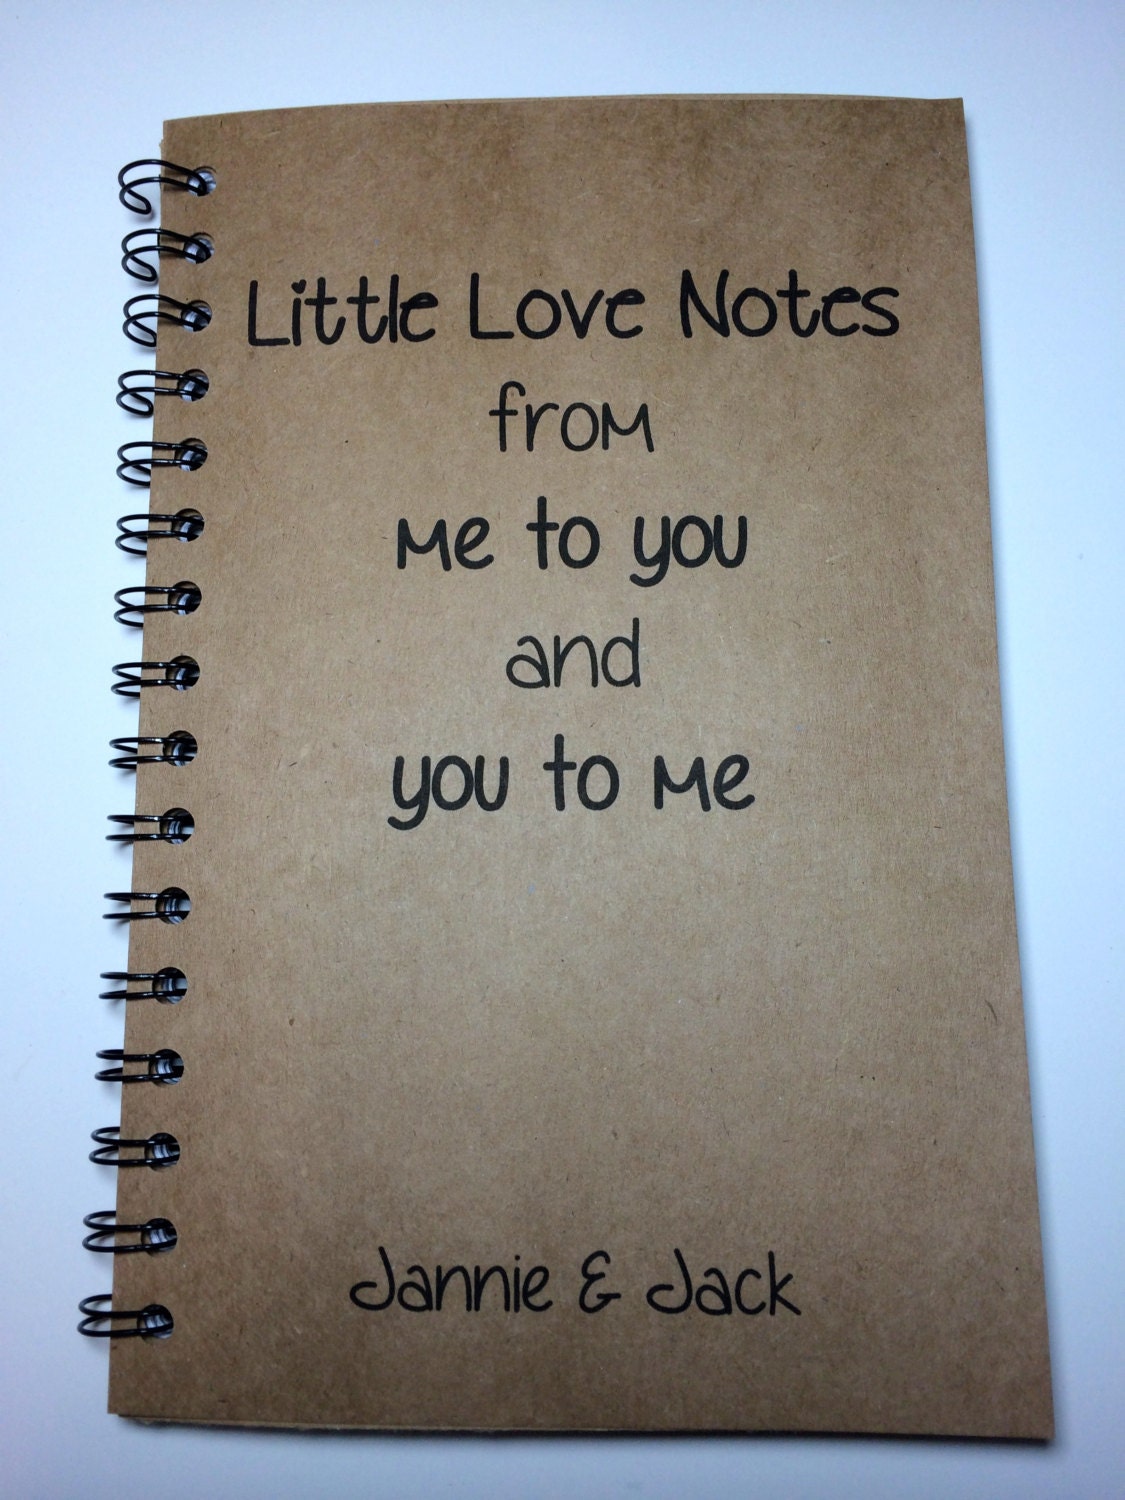 Little Love Notes
from
me to you
and
you to me
Jannie & Jack